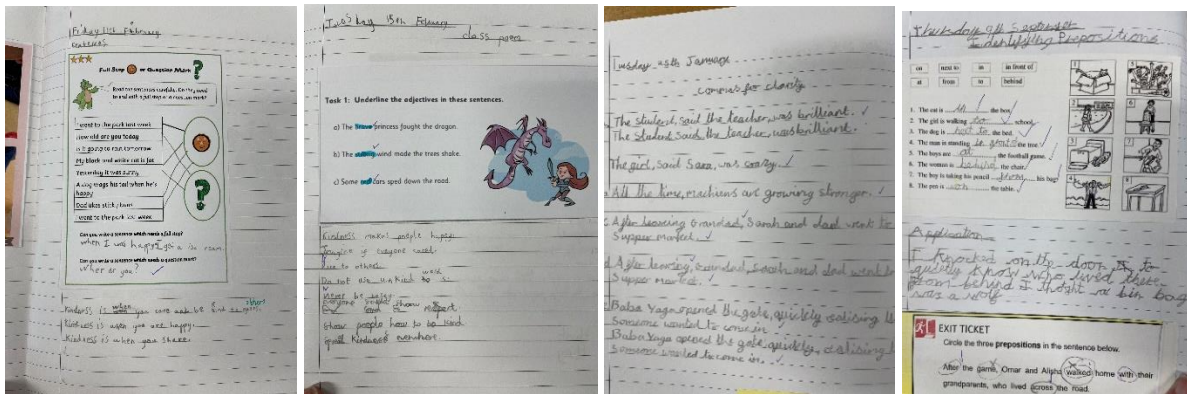 Friday 11th February
Full Stop or Question Mark ?
I went to the park last week
How old are you today
is it going to rain tomorrow
My black and white cat is fat
Yesterday it was sunny
A dog wags his tail when he's happy
Dad likes sticky jam
I went to the park last week
Can you write a sentence which needs a full stop?
when I was happy I got a
Can you write a sentence which needs a question mark?
Wher ar you?
Kindness is when you care and be
Kindness is when you are happy.
Kindness is when you share.
Tuesday 15th February
class poem
Task 1: Underline the adjectives in these sentences.
a) The brave princess fought the dragon.
b) The wind made the trees shake.
c) Some cars sped down the road.
Kindness makes people happy
Imagine if everyone
to others.
Do not use unkind to
never be
Everyone show respect
Show people how to be kind
Kindness
January
commas for clarity
The student, said the teacher, was brilliant.
The student said the teacher was brilliant.
The girl, said Sara, was crazy.
All the time, machines are growing stronger.
After leaving Grandad, Sarah and dad went to
Supper market.
After leaving, Grandad, Sarah and dad went to
Supper market.
Baba Yaga opened the gate, quickly
Someone wanted to come in.
Baba Yaga opened the gate quickly,
Someone wanted to come in.
Thursday 9th September
Identifying Prepositions
on next to in in front of
at from to behind
1. The cat is in the box.
2. The girl is walking to school.
3. The dog is next to the bed.
4. The man is standing in front the tree.
5. The boys are at the football game.
6. The woman is behind the chair.
7. The boy is taking his pencil from his bag.
8. The pen is on the table.
Application
I knocked on the door to
quietly know who lived there
from behind I thoght a bin bag
was a wolf
EXIT TICKET
Circle the three prepositions in the sentence below.
After the game, Omar and Alisha walked home with their
grandparents, who lived across the road.